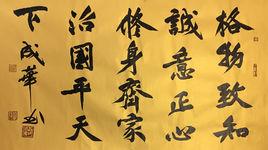 格物致知
誠意正心
修身齊家
治國平天
下 成華书